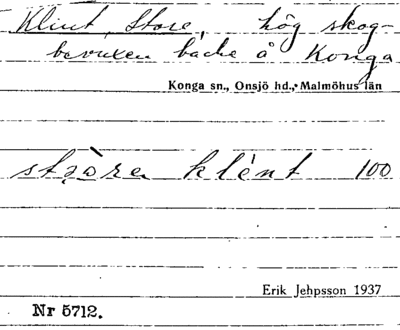 Klint, Store, hög skog-
bevuxen backe å Konga
Konga sn., Onsjö hd., Malmöhus län
klént 100
Erik Jehpsson 1937
Nr 5712.